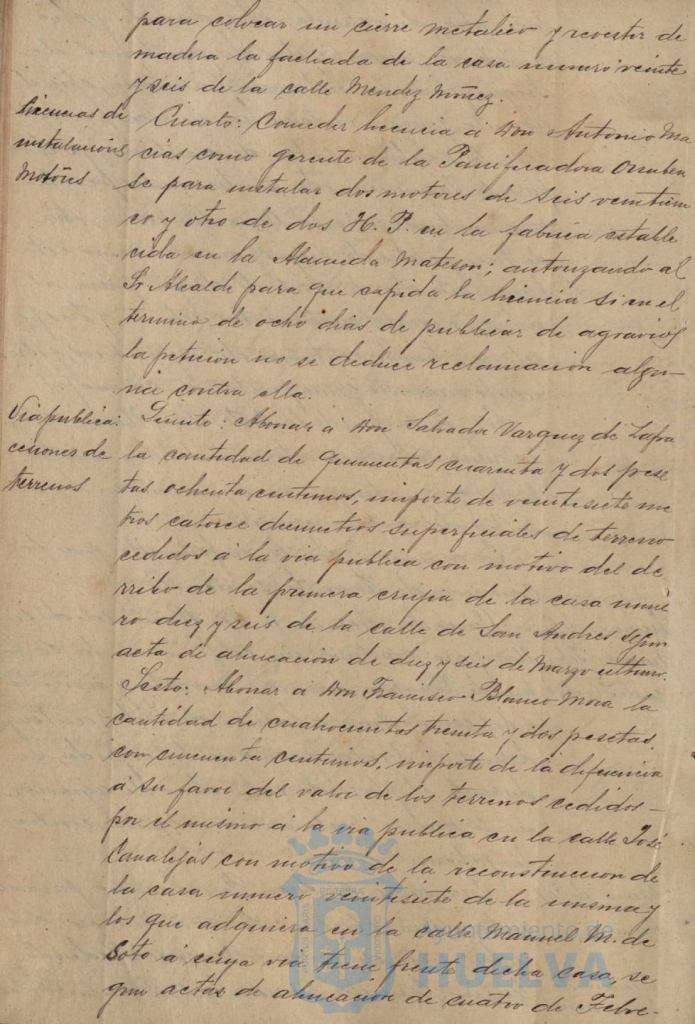 para colocar un cierre metalico y revestir de
madera la fachada de la casa numero veinte
y seis de la calle Mendez Nuñez.
Licencias de
instalacións
Motores
Cuarto: Conceder licencia á Don Antonio Ma
cias como gerente de la Panificadora Onuben
se para instalar dos motores de seis veinticin
co y otro de dos H. P. en la fabrica estable
cida en la Alameda Mateson; autorizando al
Sr Alcalde para que expida la licencia si en el
termino de ocho dias de publicar de agravios
la peticion no se deduce reclamacion algu-
na contra ella.
Via publica:
cesiones de
terrenos
Quinto: Abonar á Don Salvador Vazquez de Zafra
la cantidad de quinientas cuarenta y dos pese
tas ochenta centimos, importe de veintisiete me
tros catorce decimetros superficiales de terreno
cedidos á la via publica con motivo del de
rribo de la primera crujia de la casa nume
ro diez y seis de la calle de San Andres segun
acta de alineación de diez y seis de Marzo ultimo.
Sesto: Abonar á Don Francisco Blanco Mora la
cantidad de cuatrocientas treinta y dos pesetas,
con cincuenta centimos, importe de la diferencia
á su favor del valor de los terrenos cedidos -
por el mismo á la via publica en la calle José
Canalejas con motivo de la reconstruccion de
la casa numero veintisiete de la misma y
los que adquiera en la calle Manuel M. de
Soto á cuya via tiene frente dicha casa, se
gun actas de alineación de cuatro de Febre-
Ayuntamiento de
HUELVA